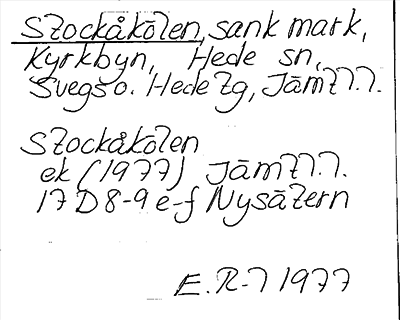 Stockåkölen, sank mark,
Kyrkbyn, Hede sn,
Svegs o. Hede tg, Jämtl.l.
Stockåkölen
ek (1977) Jämtl.l.
17 D 8-9 e-f Nysätern
E. R-l 1977